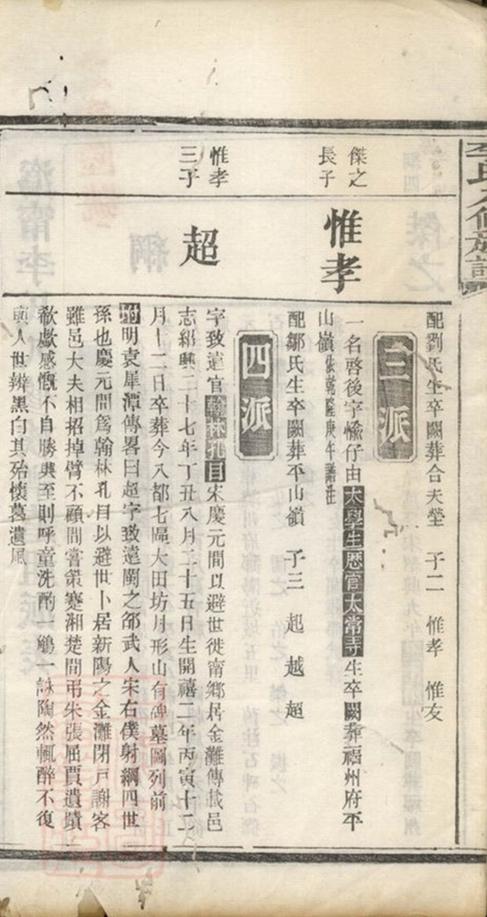 李氏六修族譜
配劉氏生卒闕葬合夫塋 子二 惟孝 惟友
三派
傑之
長子
惟孝
一名啓後字愉仔由太學生歷官太常寺生卒闕葬福州府平
山嶺
配鄒氏生卒闕葬平山嶺 子三 起 越 超
四派
惟孝
三子
超
字致遠官翰林孔目宋慶元間以避世徙甯鄉居金灘傳載邑
志紹興二十七年丁丑八月二十五日生開禧二年丙寅十二
月十二日卒葬今八都七區大田坊月形山有碑墓圖列前
附明袁犀潭傳畧曰超字致遠閩之邵武人宋右僕射綱四世
孫也慶元間爲翰林孔目以避世卜居新陽之金灘閉戸謝客
雖邑大夫相招掉臂不顧間嘗策蹇湘楚間弔朱張屈賈遺蹟
欷歔感慨不自勝興至則呼童洗酌一觴一詠陶然輒醉不復
與人世辨黑白其殆懷葛遺風